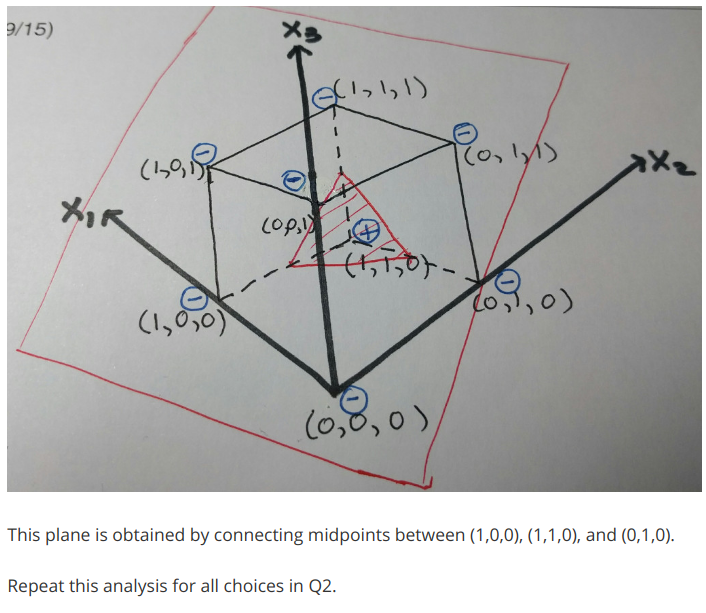 9/15)
X3
(1,1,1)
(1,0,1)
(0,1,1)
X2
X1
(0,0,1)
(1,1,0)
(1,0,0)
(0,1,0)
(0,0,0)
This plane is obtained by connecting midpoints between (1,0,0), (1,1,0), and (0,1,0).
Repeat this analysis for all choices in Q2.